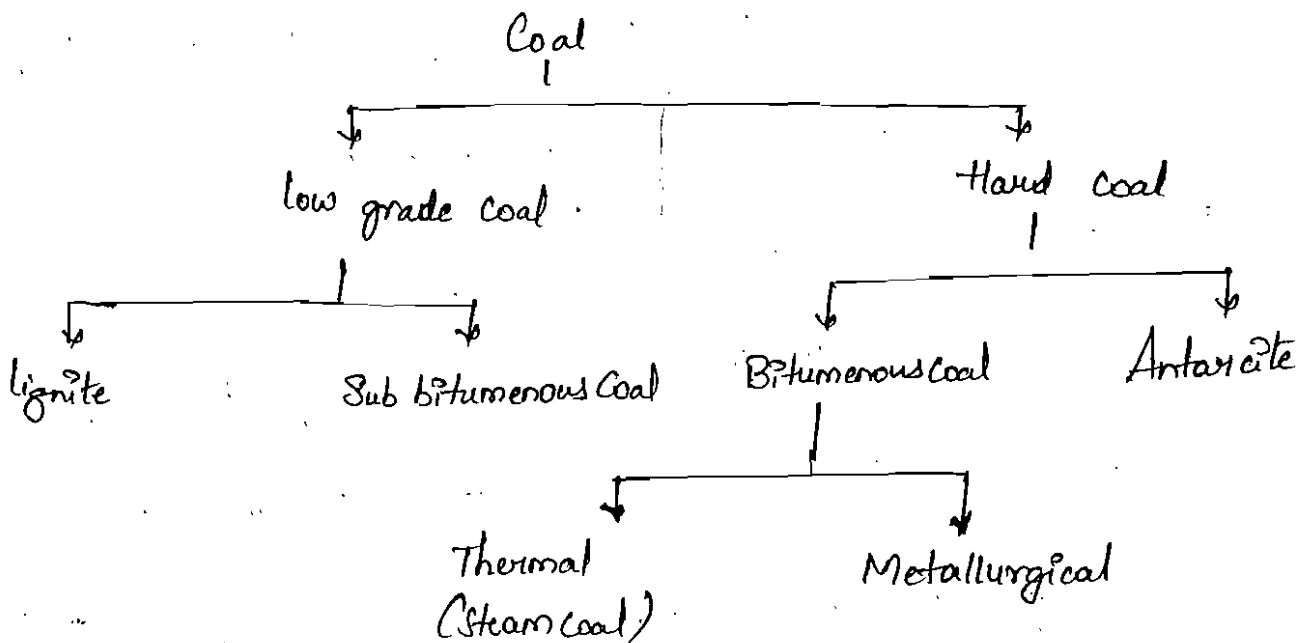 Coal
low grade coal.
Hard coal
lignite
Sub bitumenous Coal
Bitumenous coal
Antarcite
Thermal
(Steam coal)
Metallurgical